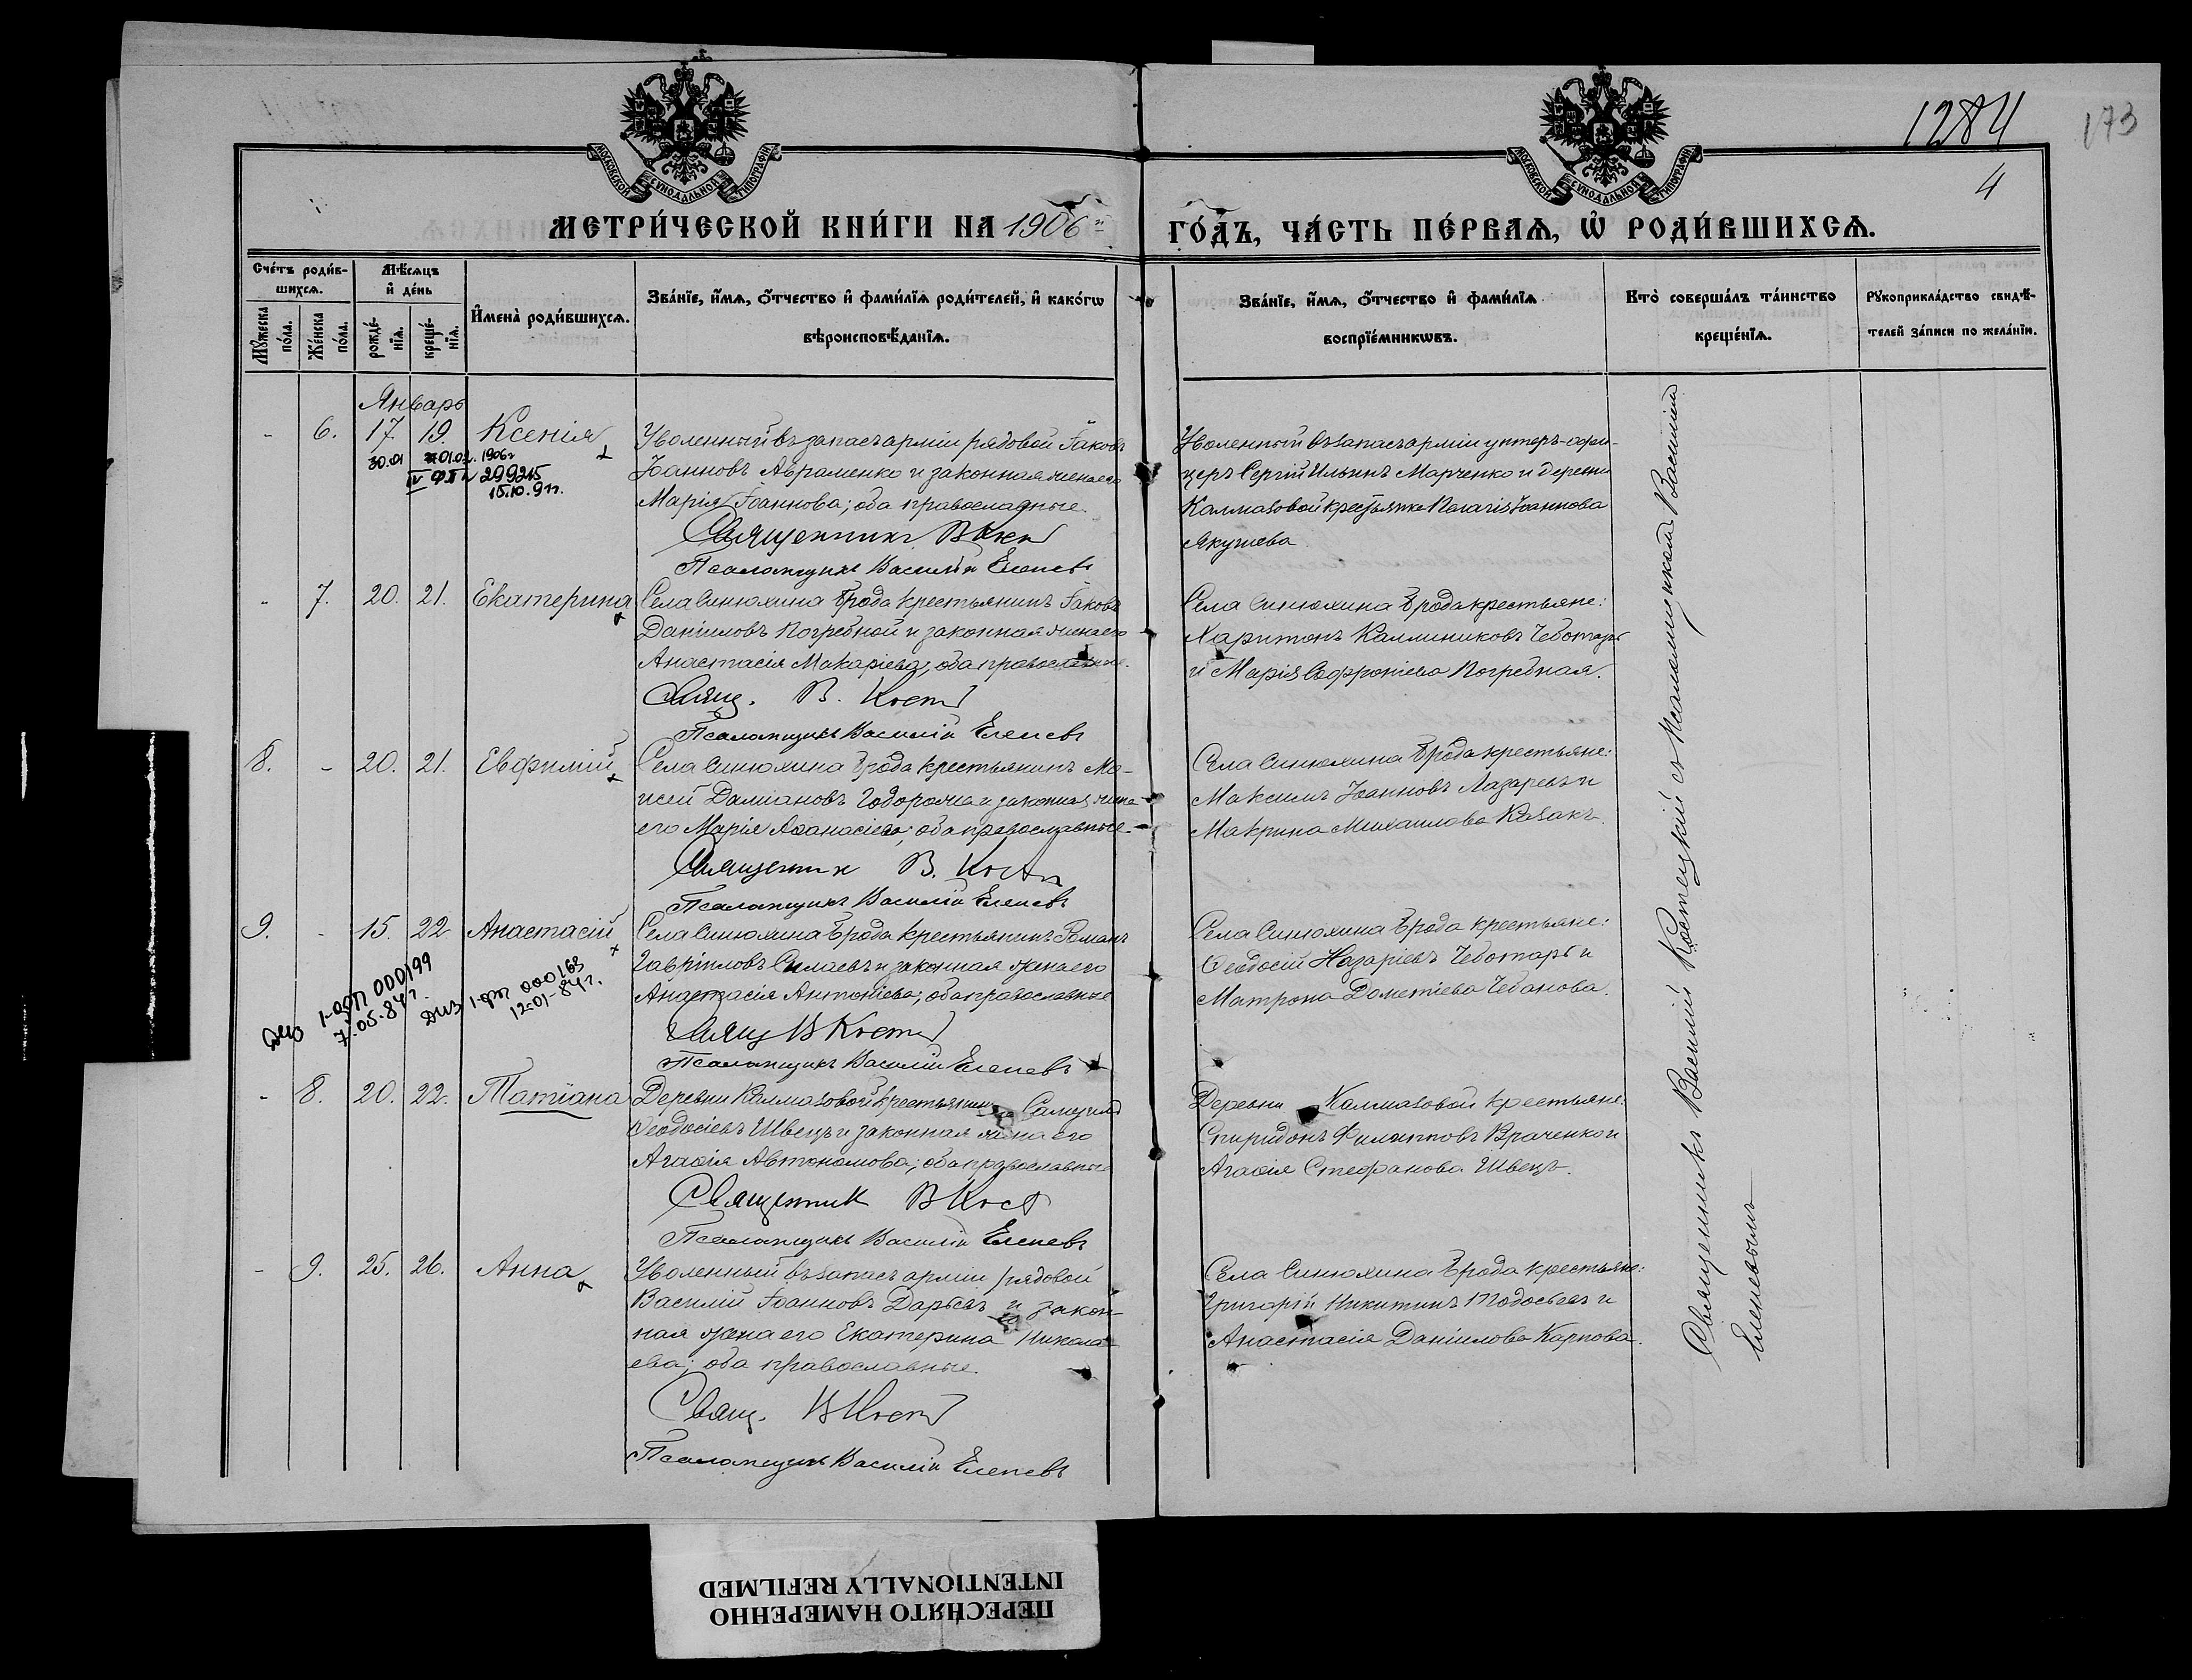 1284
173
4
МОСКОВСКОЙ СѴНОДАЛЬНОЙ ТИПОГРАФІИ
МОСКОВСКОЙ СѴНОДАЛЬНОЙ ТИПОГРАФІИ
МЕТРИ́ЧЕСКОЙ КНИ́ГИ НА 1906й
ГО́ДЪ, ЧА́СТЬ ПЕ́РВАѦ, Ѡ РОДИ́ВШИХСѦ.
Сче́тъ роди́в-
шихсѧ.
Мѣ́сѧцъ
и҆ де́нь
Мꙋ́жеска по́ла.
Же́нска по́ла.
рожде́-
нїѧ.
креще́-
нїѧ.
И҆мена̀ роди́вшихсѧ.
Зва́нїе, и҆́мѧ, ѻ҆́тчество и҆ фами́лїѧ роди́телей, и҆ како́гѡ
вѣроисповѣ́данїѧ.
Зва́нїе, и҆́мѧ, ѻ҆́тчество и҆ фами́лїѧ
воспрїе́мникѡвъ.
Кто̀ соверша́лъ та́инство
креще́нїѧ.
Рꙋкоприкла́дство свидѣ́-
телей за́писи по жела́нїю.
Январь
- 6. 17. 19. Ксенія
30.01 01.02. 1906г
299215
15.10.91г.
Уволенный въ запасъ арміи рядовой Іаковъ
Іоанновъ Авраменко и законная жена его
Марія Іоаннова; оба православные.
Священникъ В Кост
Псаломщикъ Василій Еленевъ
Уволенный въ запасъ арміи унтеръ-офи-
церъ Сергій Ильинъ Марченко и деревни
Калмазовой крестьянка Пелагія Іоаннова
Якушева
- 7. 20. 21. Екатерина
Села Синюхина Брода крестьянинъ Іаковъ
Даніиловъ Погребной и законная жена его
Анастасія Макаріева; оба православные.
Свящ. В. Кост
Псаломщикъ Василій Еленевъ
Села Синюхина Брода крестьяне:
Харитонъ Каллиниковъ Чеботарь
и Марія Софроніева Погребная.
8. - 20. 21. Евфимій
Села Синюхина Брода крестьянинъ Мо-
исей Даміановъ Годорожа и законная жена
его Марія Аѳанасіева; оба православные.
Священник В. Кост
Псаломщикъ Василій Еленевъ
Села Синюхина Брода крестьяне:
Максимъ Іоанновъ Лазаревъ и
Макрина Михаилова Казакъ.
9. - 15. 22 Анастасій
Села Синюхина Брода крестьянинъ Романъ
Гавріиловъ Силаевъ и законная жена его
Анастасія Антоніева; оба православные
Свящ В Кост
Псаломщикъ Василій Еленевъ
Села Синюхина Брода крестьяне:
Ѳеодосій Назаріевъ Чеботарь и
Матрона Дометіева Чебанова.
000199
7.05.84г.
000163
12-01-84г.
- 8. 20. 22. Татіана
Деревни Калмазовой крестьянинъ Самуилъ
Ѳеодосіевъ Швецъ и законная жена его
Агаѳія Автономова; оба православные
Священник В Кост
Псаломщикъ Василій Еленевъ
Деревни Калмазовой крестьяне:
Спиридонъ Филипповъ Враченко и
Агаѳія Стефанова Швецъ.
- 9. 25. 26. Анна
Уволенный въ запасъ арміи рядовой
Василій Іоанновъ Дарьевъ и закон-
ная жена его Екатерина Никола-
ева; оба православные.
Свящ. В Кост
Псаломщикъ Василій Еленевъ
Села Синюхина Брода крестьяне:
Григорій Никитинъ Тодосьевъ и
Анастасія Даніилова Карпова.
Священникъ Василій Костецкій съ псаломщикомъ Василіемъ
Еленевымъ
ПЕРЕСНЯТО НАМЕРЕННО
INTENTIONALLY REFILMED